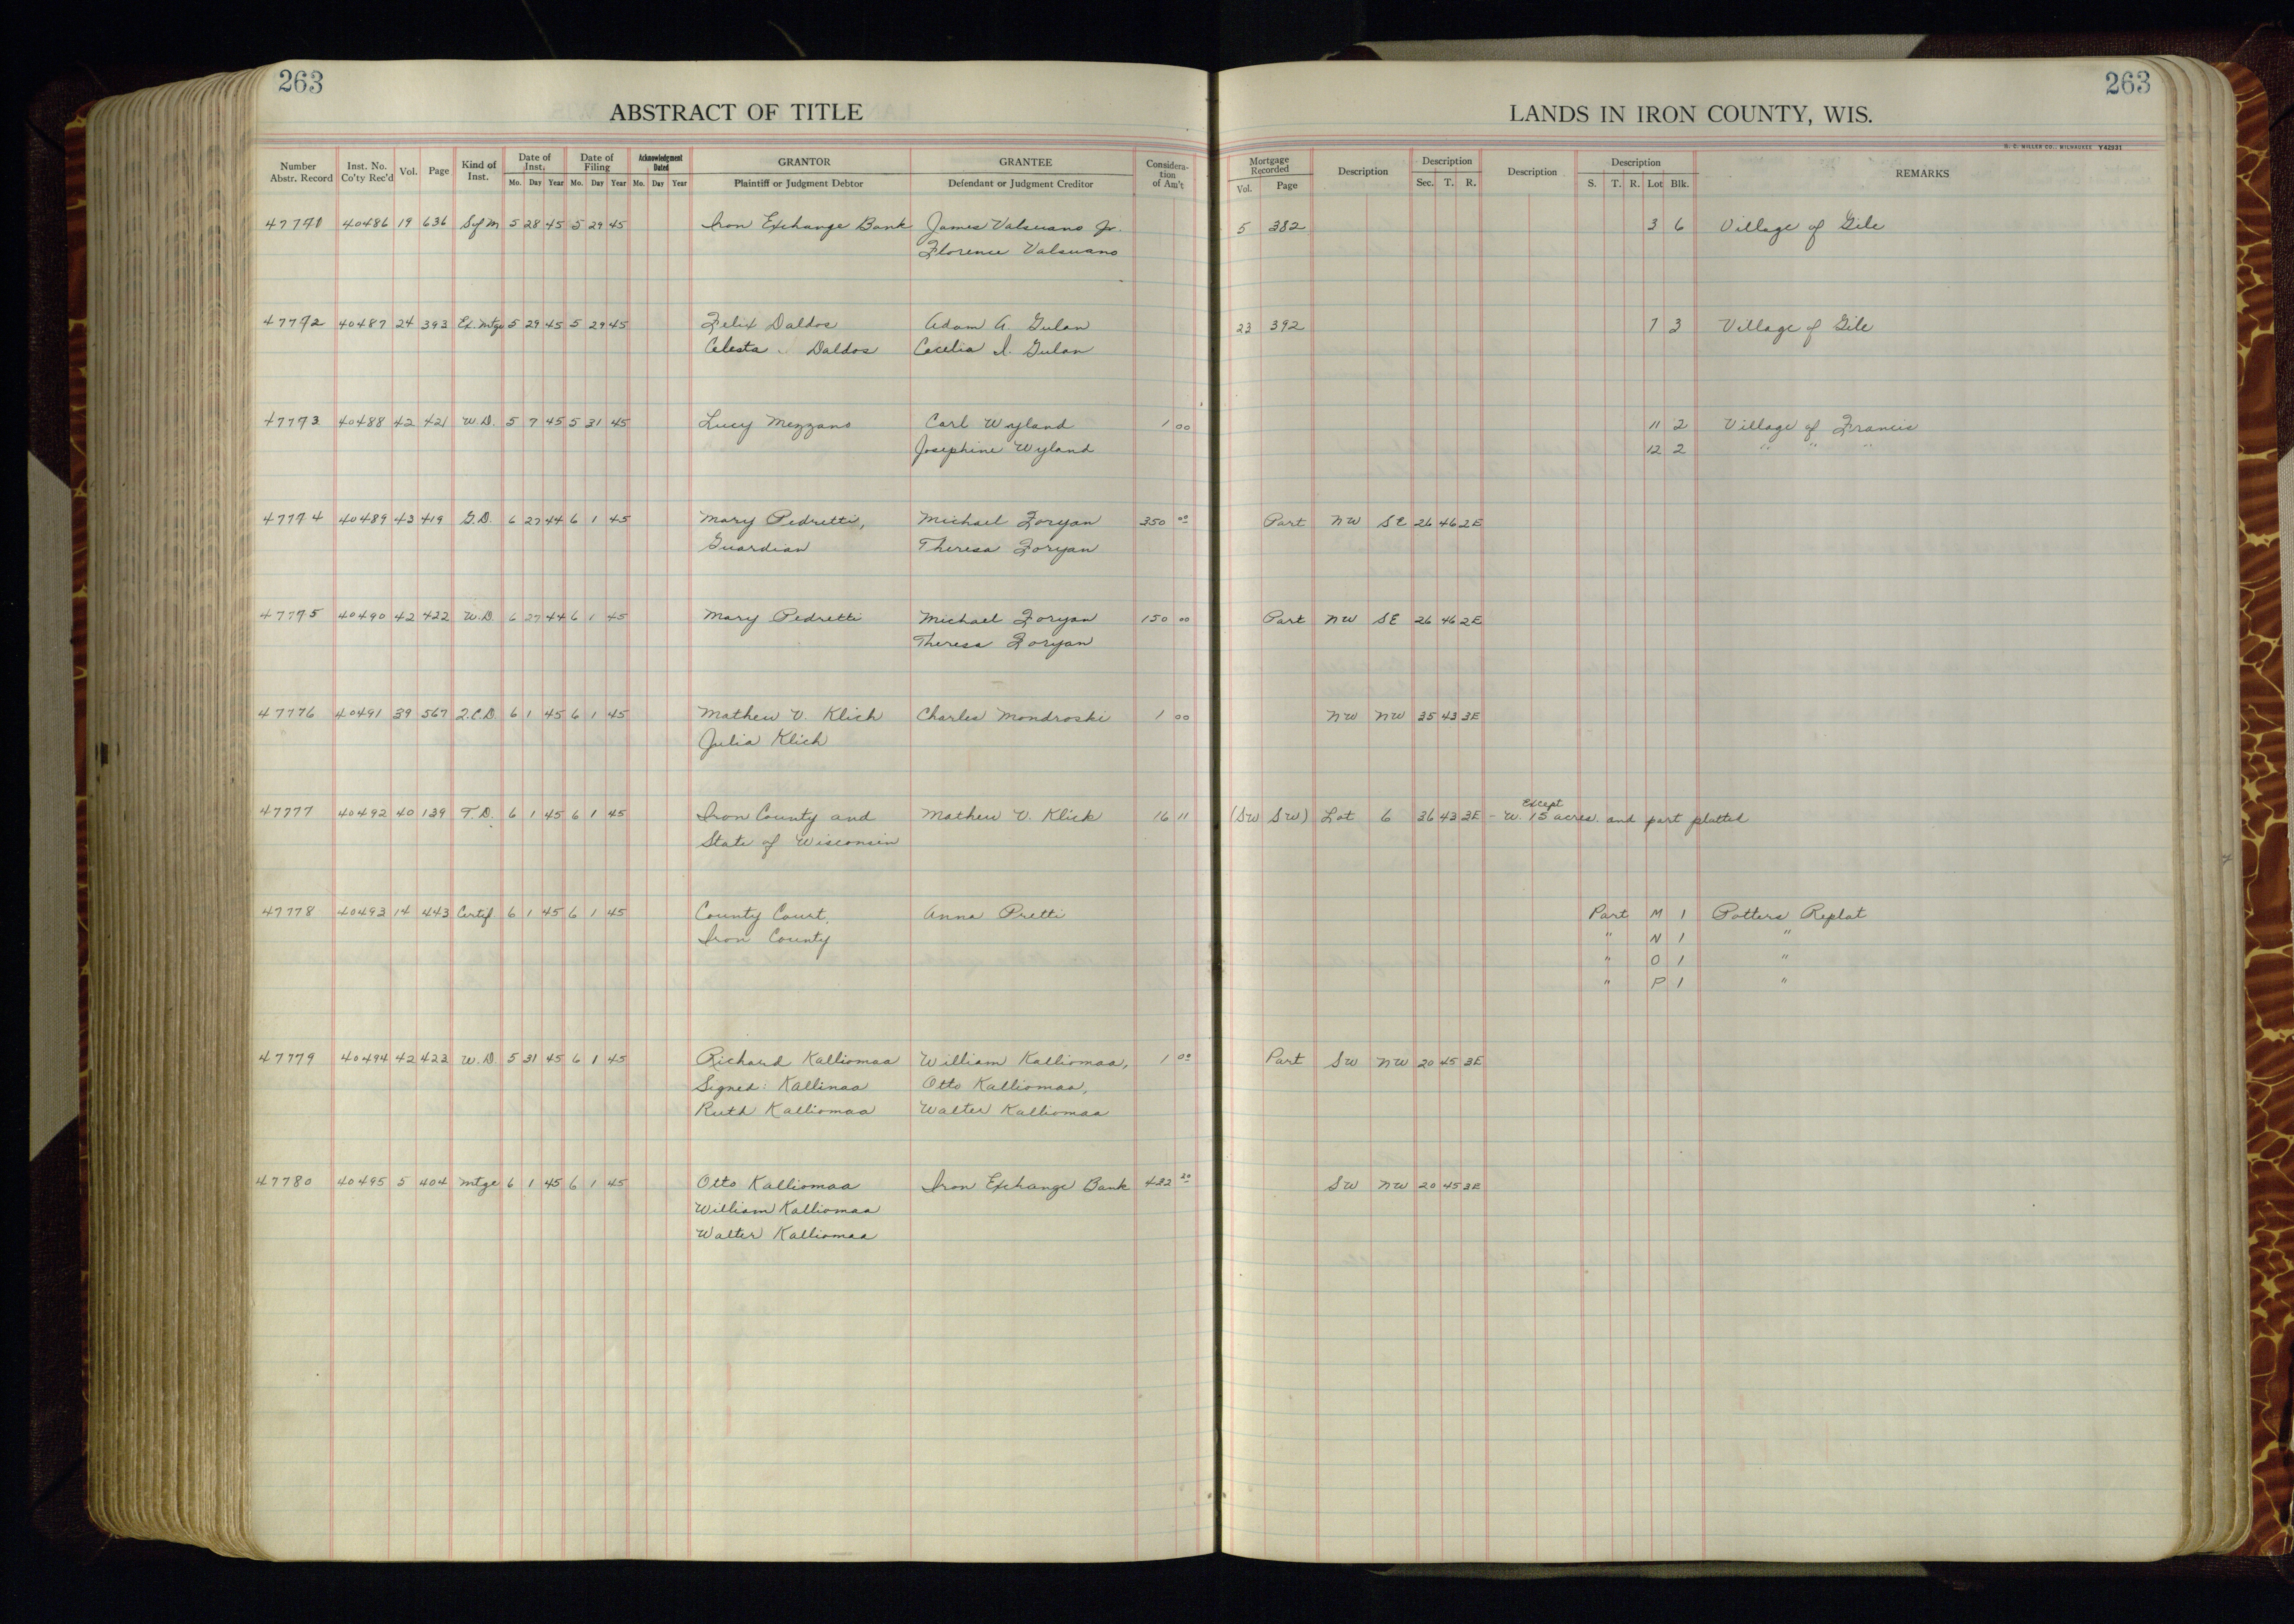 263
263
ABSTRACT OF TITLE
LANDS IN IRON COUNTY, WIS.
H. C. MILLER CO., MILWAUKEE Y42931
Number Abstr. Record Inst. No. Co'ty Rec'd Vol. Page Kind of Inst. Date of Inst. Mo. Day Year Date of Filing Mo. Day Year Acknowledgment Dated Mo. Day Year GRANTOR Plaintiff or Judgment Debtor GRANTEE Defendant or Judgment Creditor Considera-tion of Am't Mortgage Recorded Vol. Page Description Description Sec. T. R. Description Description S. T. R. Lot Blk. REMARKS
40486 19 636 S of M 5 28 45 5 29 45 Iron Exchange Bank James Valsuano Jr. 5 382 3 6 Village of Gile
Florence Valsuano
47772 40487 24 393 Ex. Mtge 5 29 45 5 29 45 Felix Daldos Adam A. Gulan 23 392 7 3 Village of Gile
Celesta Daldos Cecelia I. Gulan
47773 40488 42 421 W.D. 5 7 45 5 31 45 Lucy Mezzano Carl Wyland 1 00 11 2 Village of Francis
Josephine Wyland 12 2 " " "
47774 40489 43 419 G.D. 6 27 44 6 1 45 Mary Pedretti, Michael Foryan 350 00 Part NW SE 26 46 2E
Guardian Theresa Foryan
47775 40490 42 422 W.D. 6 27 44 6 1 45 Mary Pedretti Michael Foryan 150 00 Part NW SE 26 46 2E
Theresa Foryan
47776 40491 39 567 Q.C.D. 6 1 45 6 1 45 Mathew V. Klich Charles Mondroski 1 00 NW NW 35 43 3E
Julia Klich
47777 40492 40 139 T.D. 6 1 45 6 1 45 Iron County and Mathew V. Klich 16 11 (SW SW) Lot 6 36 43 3E - Except W. 15 acres and part platted
State of Wisconsin
47778 40493 14 443 Certif 6 1 45 6 1 45 County Court, Anna Pretti Part M 1 Potters Replat
Iron County " N 1 "
" O 1 "
" P 1 "
47779 40494 42 423 W.D. 5 31 45 6 1 45 Richard Kalliomaa William Kalliomaa, 1 00 Part SW NW 20 45 3E
Signed: Kallinaa Otto Kalliomaa,
Ruth Kalliomaa Walter Kalliomaa
47780 40495 5 404 Mtge 6 1 45 6 1 45 Otto Kalliomaa Iron Exchange Bank 432 20 SW NW 20 45 3E
William Kalliomaa
Walter Kalliomaa